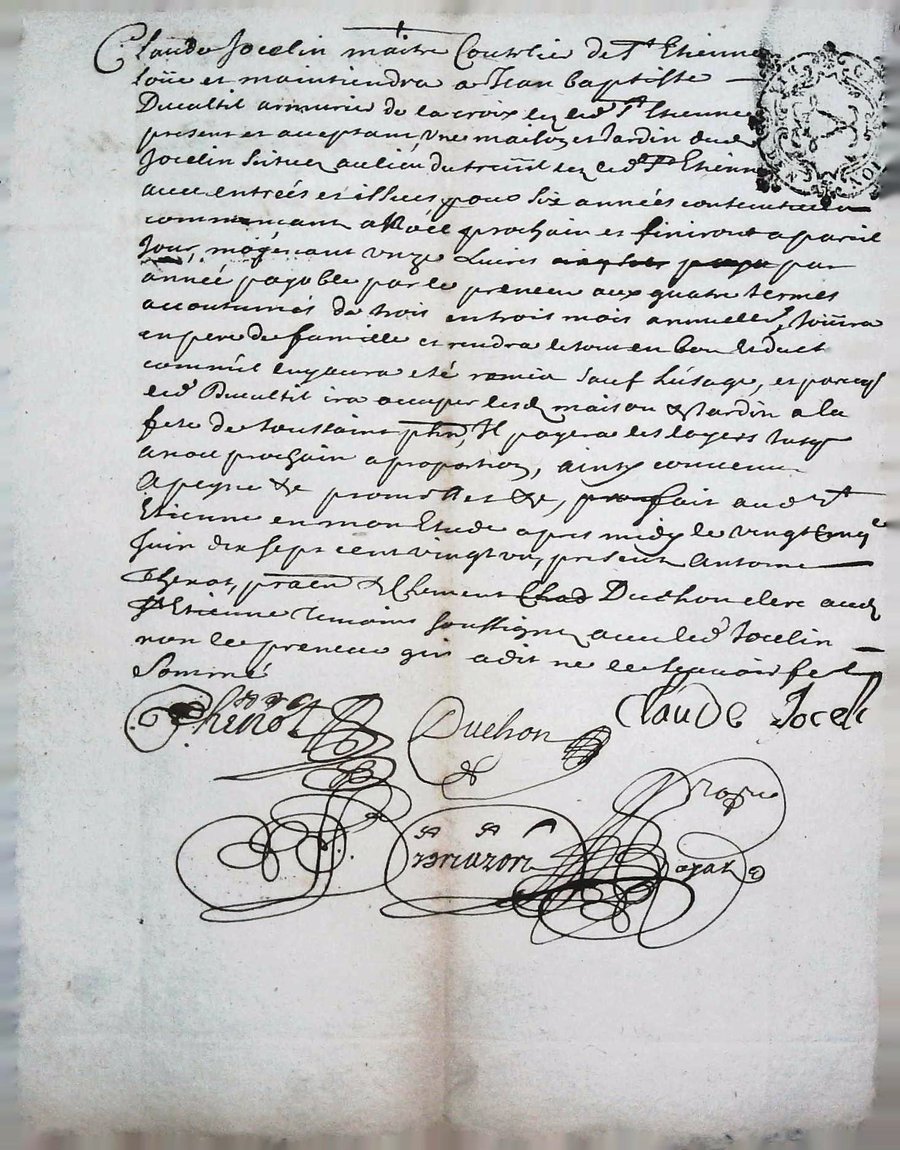 Claude Jocelin maitre Coutelie de St Etienne
loüe et maintiendra a Jean baptiste
Ducultil armurie de la croix lez led St Etienne
present et acceptant Une maison et Jardin dud
Jocelin Situez au lieu du treuil lez led St Etienne
avec entrées et issues pour Six années
commencant a Noël prochain et finiront a pareil
Jour, moyenant unze Livres par
année payable par le preneur aux quatre termes
accoutumés de trois en trois mois annuellet, Joüira
en pere de famille et rendra le tout en bon
comme luy aura eté remis Sauf Lusage, et
led Ducultil ira occuper lesd maison & Jardin a la
fete de toussaint phn, Il payera les loyers
a noel prochain a proportion, ainsy convenu
a peyne &c promettet &c, fait aud St
Etienne en mon Etude apres midy le vingt cinqe
Juin dix sept cent vingt un, present Antoine
thenot, praen & Clement Chad Duchon clerc aud
St Etienne temoins soussignez avec led Jocelin
non le preneur qui a dit ne le scavoir
Sommé
thenot Duchon Claude Joceli